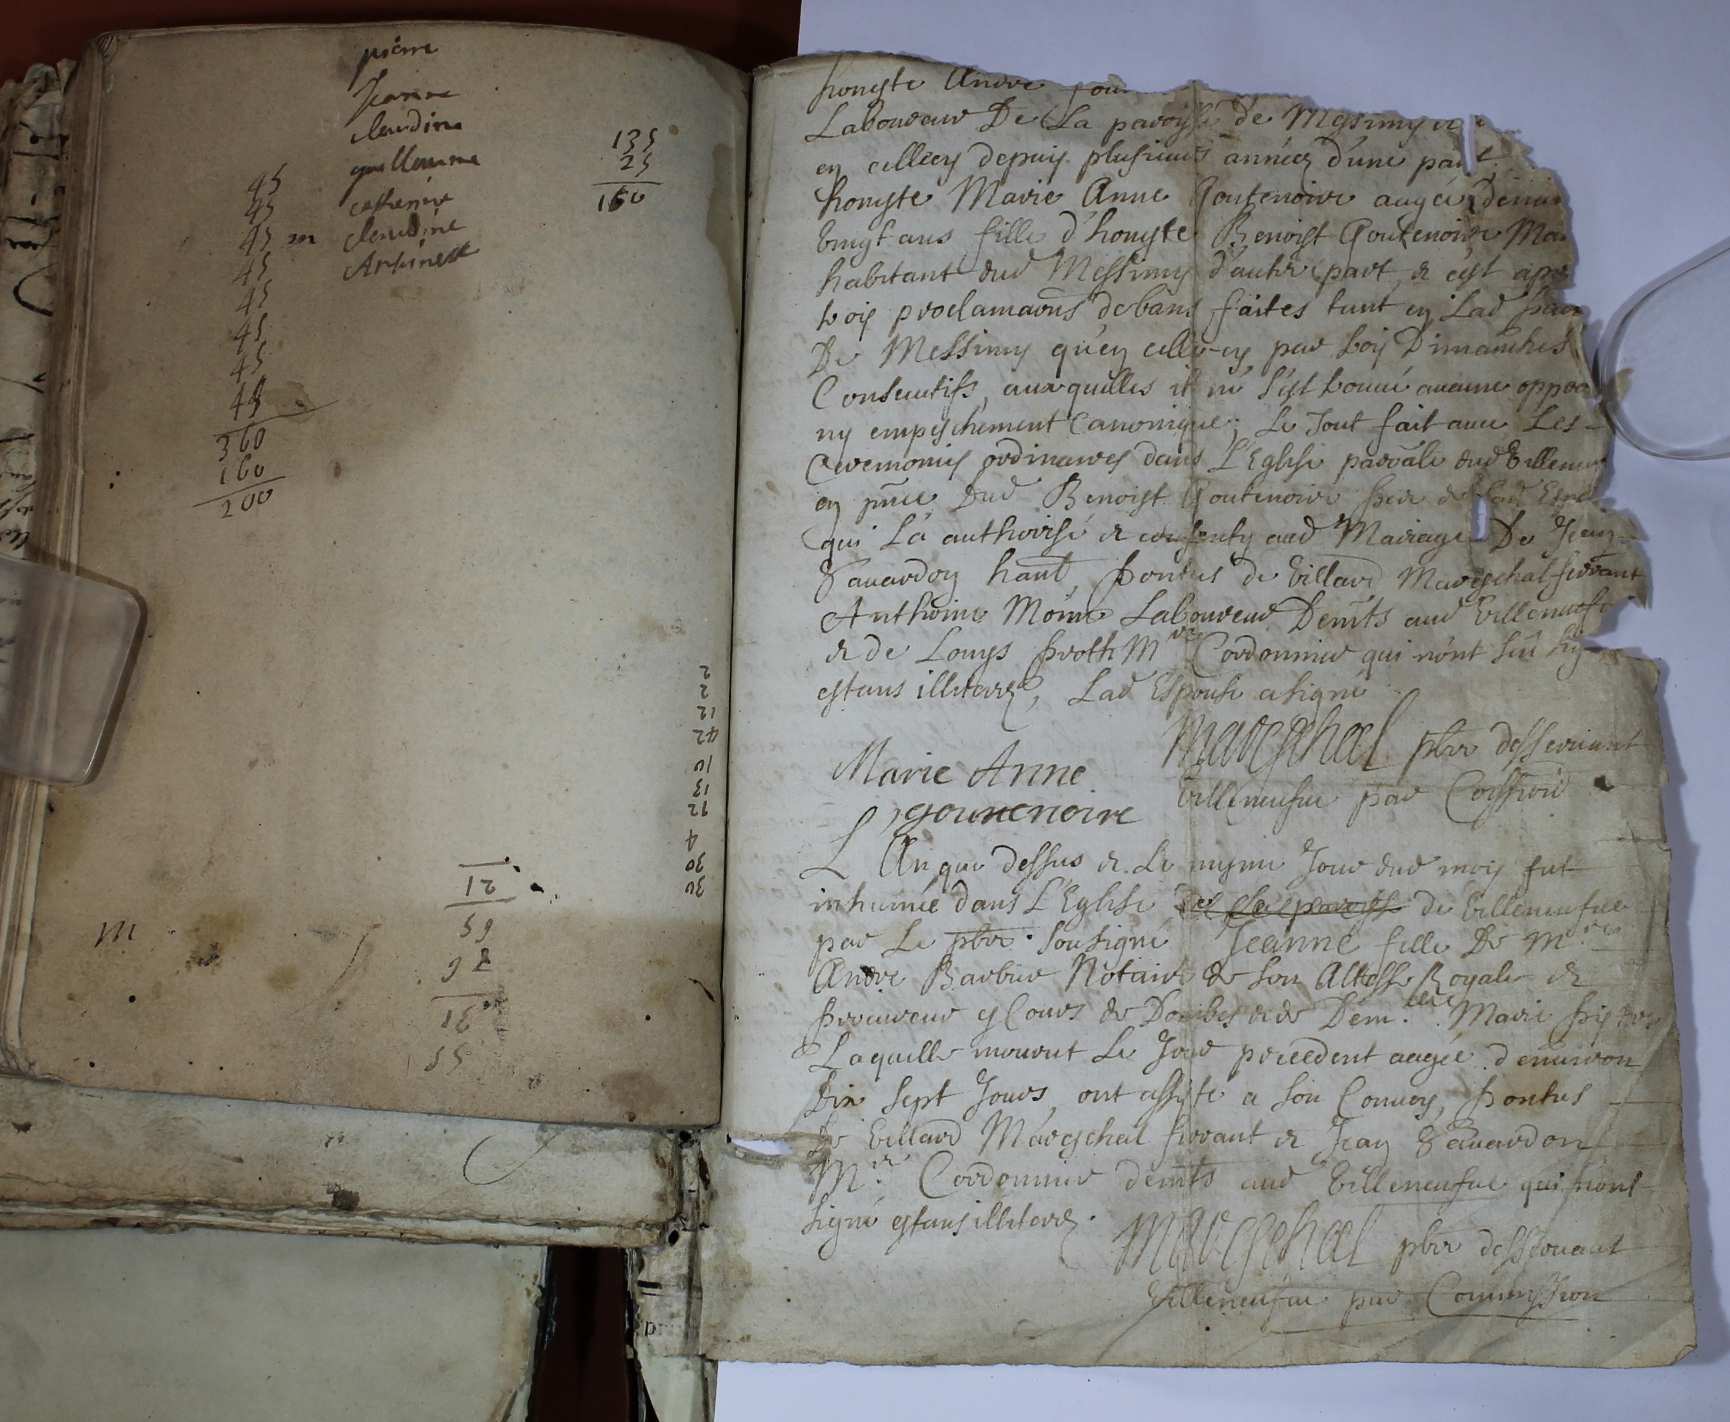 pierre
Jeanne
claudine
guillemme
catherine
m claudine
Anthoinette
135
25
160
45
45
45
45
45
45
45
45
360
160
200
2
2
12
42
10
13
12
4
30
30
12
59
m
honeste Andre
Laboureur De La paroisse de Messimy et
en celle cy depuis plusieurs années d'une part
honeste Marie Anne Goutenoire augée denui
vingt ans fille d'honeste Benoist Goutenoire Ma
habitant dud Messimy d'autre part, & c'est apr
trois proclamaons de bans faites tant en Lad
De Messimy qu'en celle-cy par trois Dimanches
Consecutifs, auxquelles il ne s'est trouué aucune oppo
ny empeschement Canonique; Le Tout fait auec Les
Ceremonies ordinaires dans L'Eglise parroâle dud Villeneu
en pnce dud Benoist Goutenoire pere de Lad Esp
qui L'a authorisé & consenty aud Mariage De Jean
Sauardon hant Pontus de Villard Mareschal ferrant
Anthoine Moine Laboureur Demts aud Villeneufu
& de Louys Proth Mre Cordonnier qui n'ont sçu sig
estans illiterez, Lad Espouse a signé
Mareschal pbre desseruant
Villeneufue par Coission
Marie Anne
goutenoire
L'An que dessus & Le mesme Jour dud mois fut
inhumée dans L'Eglise de La paroisse de Villeneufue
par Le pbre sousigné Jeanne fille De Mre
Andre Barbier Notaire de son Altesse Royale &
Procureur es Cours de Dombes & de Demlle Marie
Laquelle mourut Le Jour precedent aagée d'enuiron
Dix sept Jours, ont assisté a son Conuoy, Pontus
de Villard Mareschal ferrant & Jean Sauardon
Mre Cordonnier demts aud Villeneufue qui n'ont
signé estans illiterez.
Mareschal pbre desseruant
Villeneufue par Commission